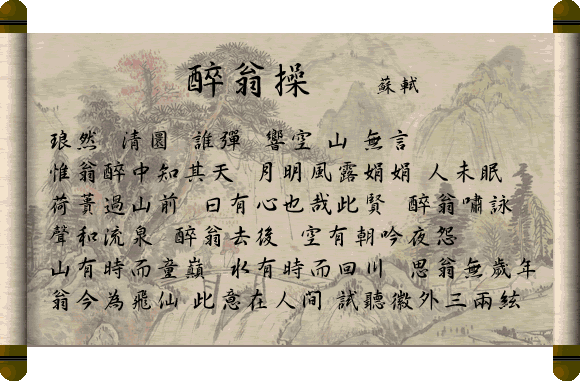 醉翁操 蘇軾
琅然 清圜 誰彈 響空 山 無言
惟翁醉中知其天 月明風露娟娟 人未眠
荷蕢過山前 曰有心也哉此賢 醉翁嘯詠
聲和流泉 醉翁去後 空有朝吟夜怨
山有時而童巔 水有時而回川 思翁無歲年
翁今為飛仙 此意在人间 試聽徽外三兩絃